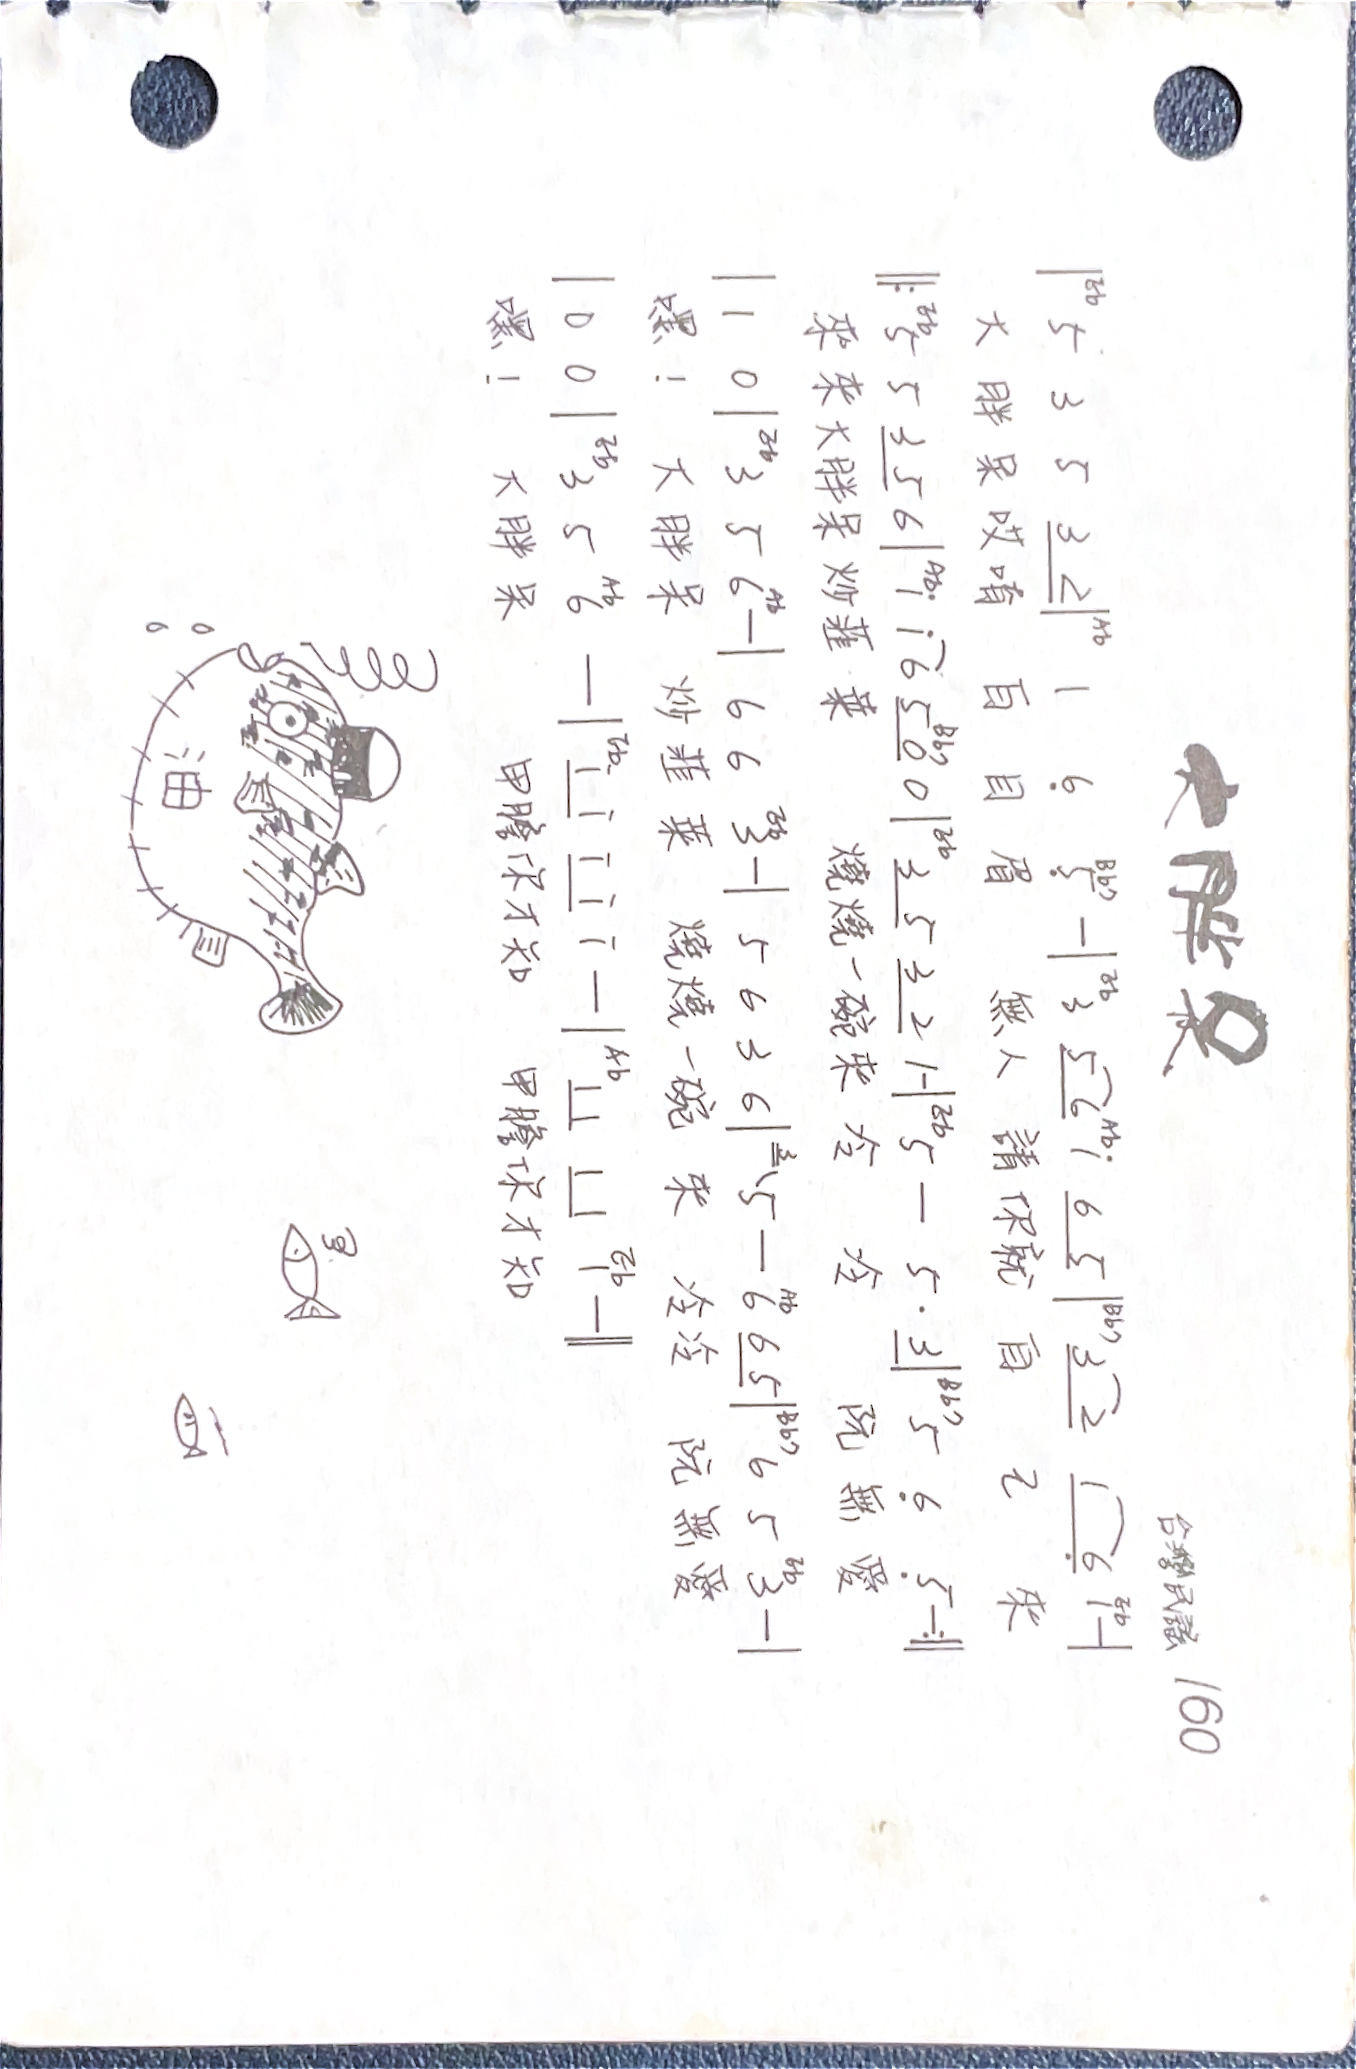 大胖呆
台灣民謠 160
|Eb 5 3 5 3 2|Ab 1 6 Bb7 5 —|Eb 3 5 6 Ab i 6 5|Bb7 3 2 1 6 Eb 1—|
大胖呆哎唷 白目眉 無人請你就自己來
‖:Eb 5 5 3 5 6|Ab i i 6 5 Bb7 0 0|Eb 3 5 3 2 1-|Eb 5 — 5 · 3|Bb7 5 6 5—:‖
來來大胖呆炒韮菜 燒燒一碗來冷 冷 阮無愛
| 1 0 |Eb 3 5 Ab 6—| 6 6 Eb 3—| 5 6 3 6|3 5 — Ab 6 6 5|Bb7 6 5 Eb 3 —|
嘿! 大胖呆 炒韮菜 燒燒一碗來 冷冷 阮無愛
| 0 0 |Eb 3 5 Ab 6 —|Eb i i i i i —|Ab 1 1 1 1 Eb 1 —‖
嘿! 大胖呆 甲膽你才知 甲膽你才知
油